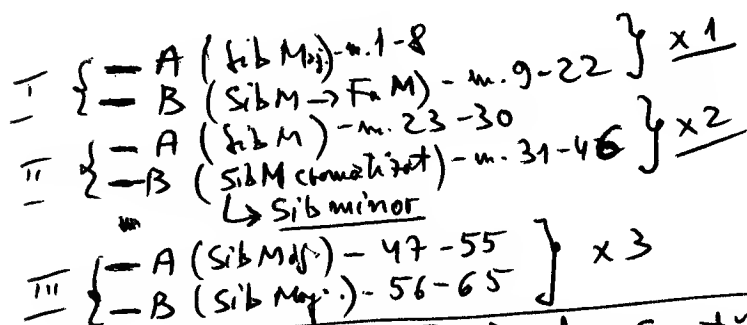 I { — A (Sib Maj.) - m. 1-8
— B (Sib M → Fa M) - m. 9-22 } x 1
II { — A (Sib M) - m. 23-30
— B (Sib M cromatizat) - m. 31-46 } x 2
↳ Sib minor
III { — A (Sib Maj.) - 47-55
— B (Sib Maj.) - 56-65 } x 3